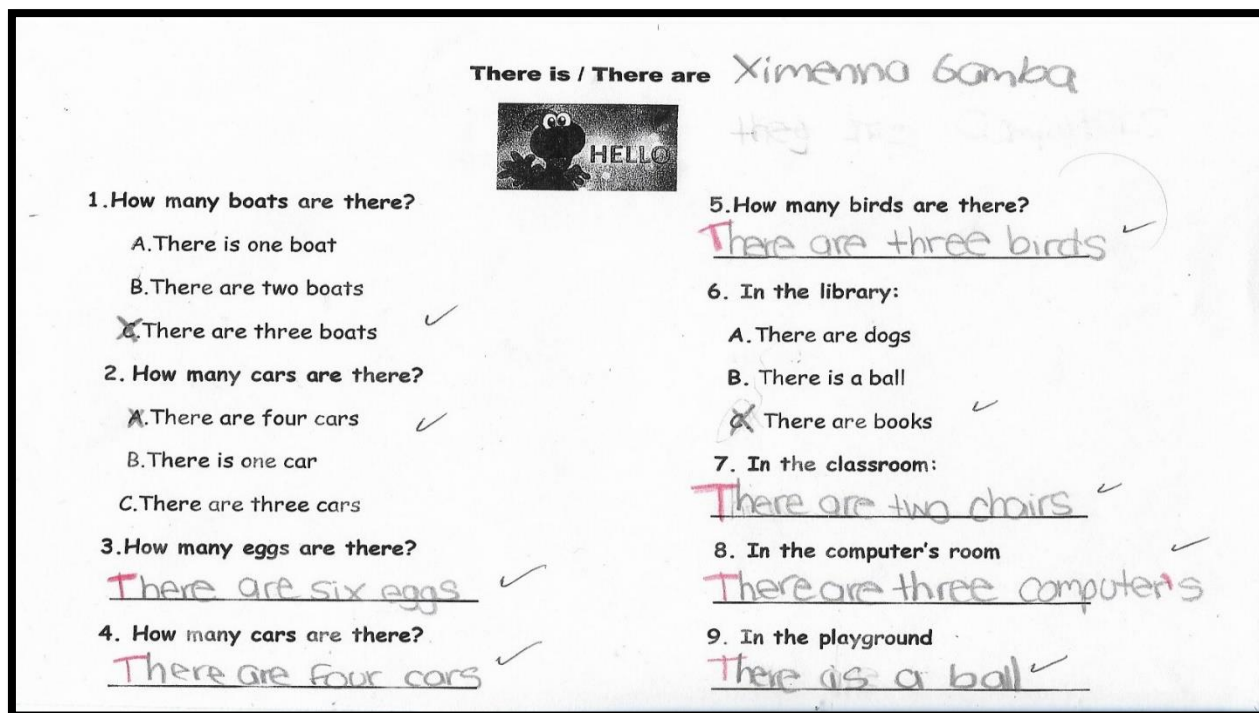 There is / There are Ximenna Gamba
HELLO
1.How many boats are there?
A.There is one boat
B.There are two boats
C.There are three boats
2. How many cars are there?
A.There are four cars
B.There is one car
C.There are three cars
3.How many eggs are there?
There are six eggs
4. How many cars are there?
There are four cars
5.How many birds are there?
There are three birds
6. In the library:
A.There are dogs
B. There is a ball
C. There are books
7. In the classroom:
There are two chairs
8. In the computer's room
There are three computer's
9. In the playground
There is a ball